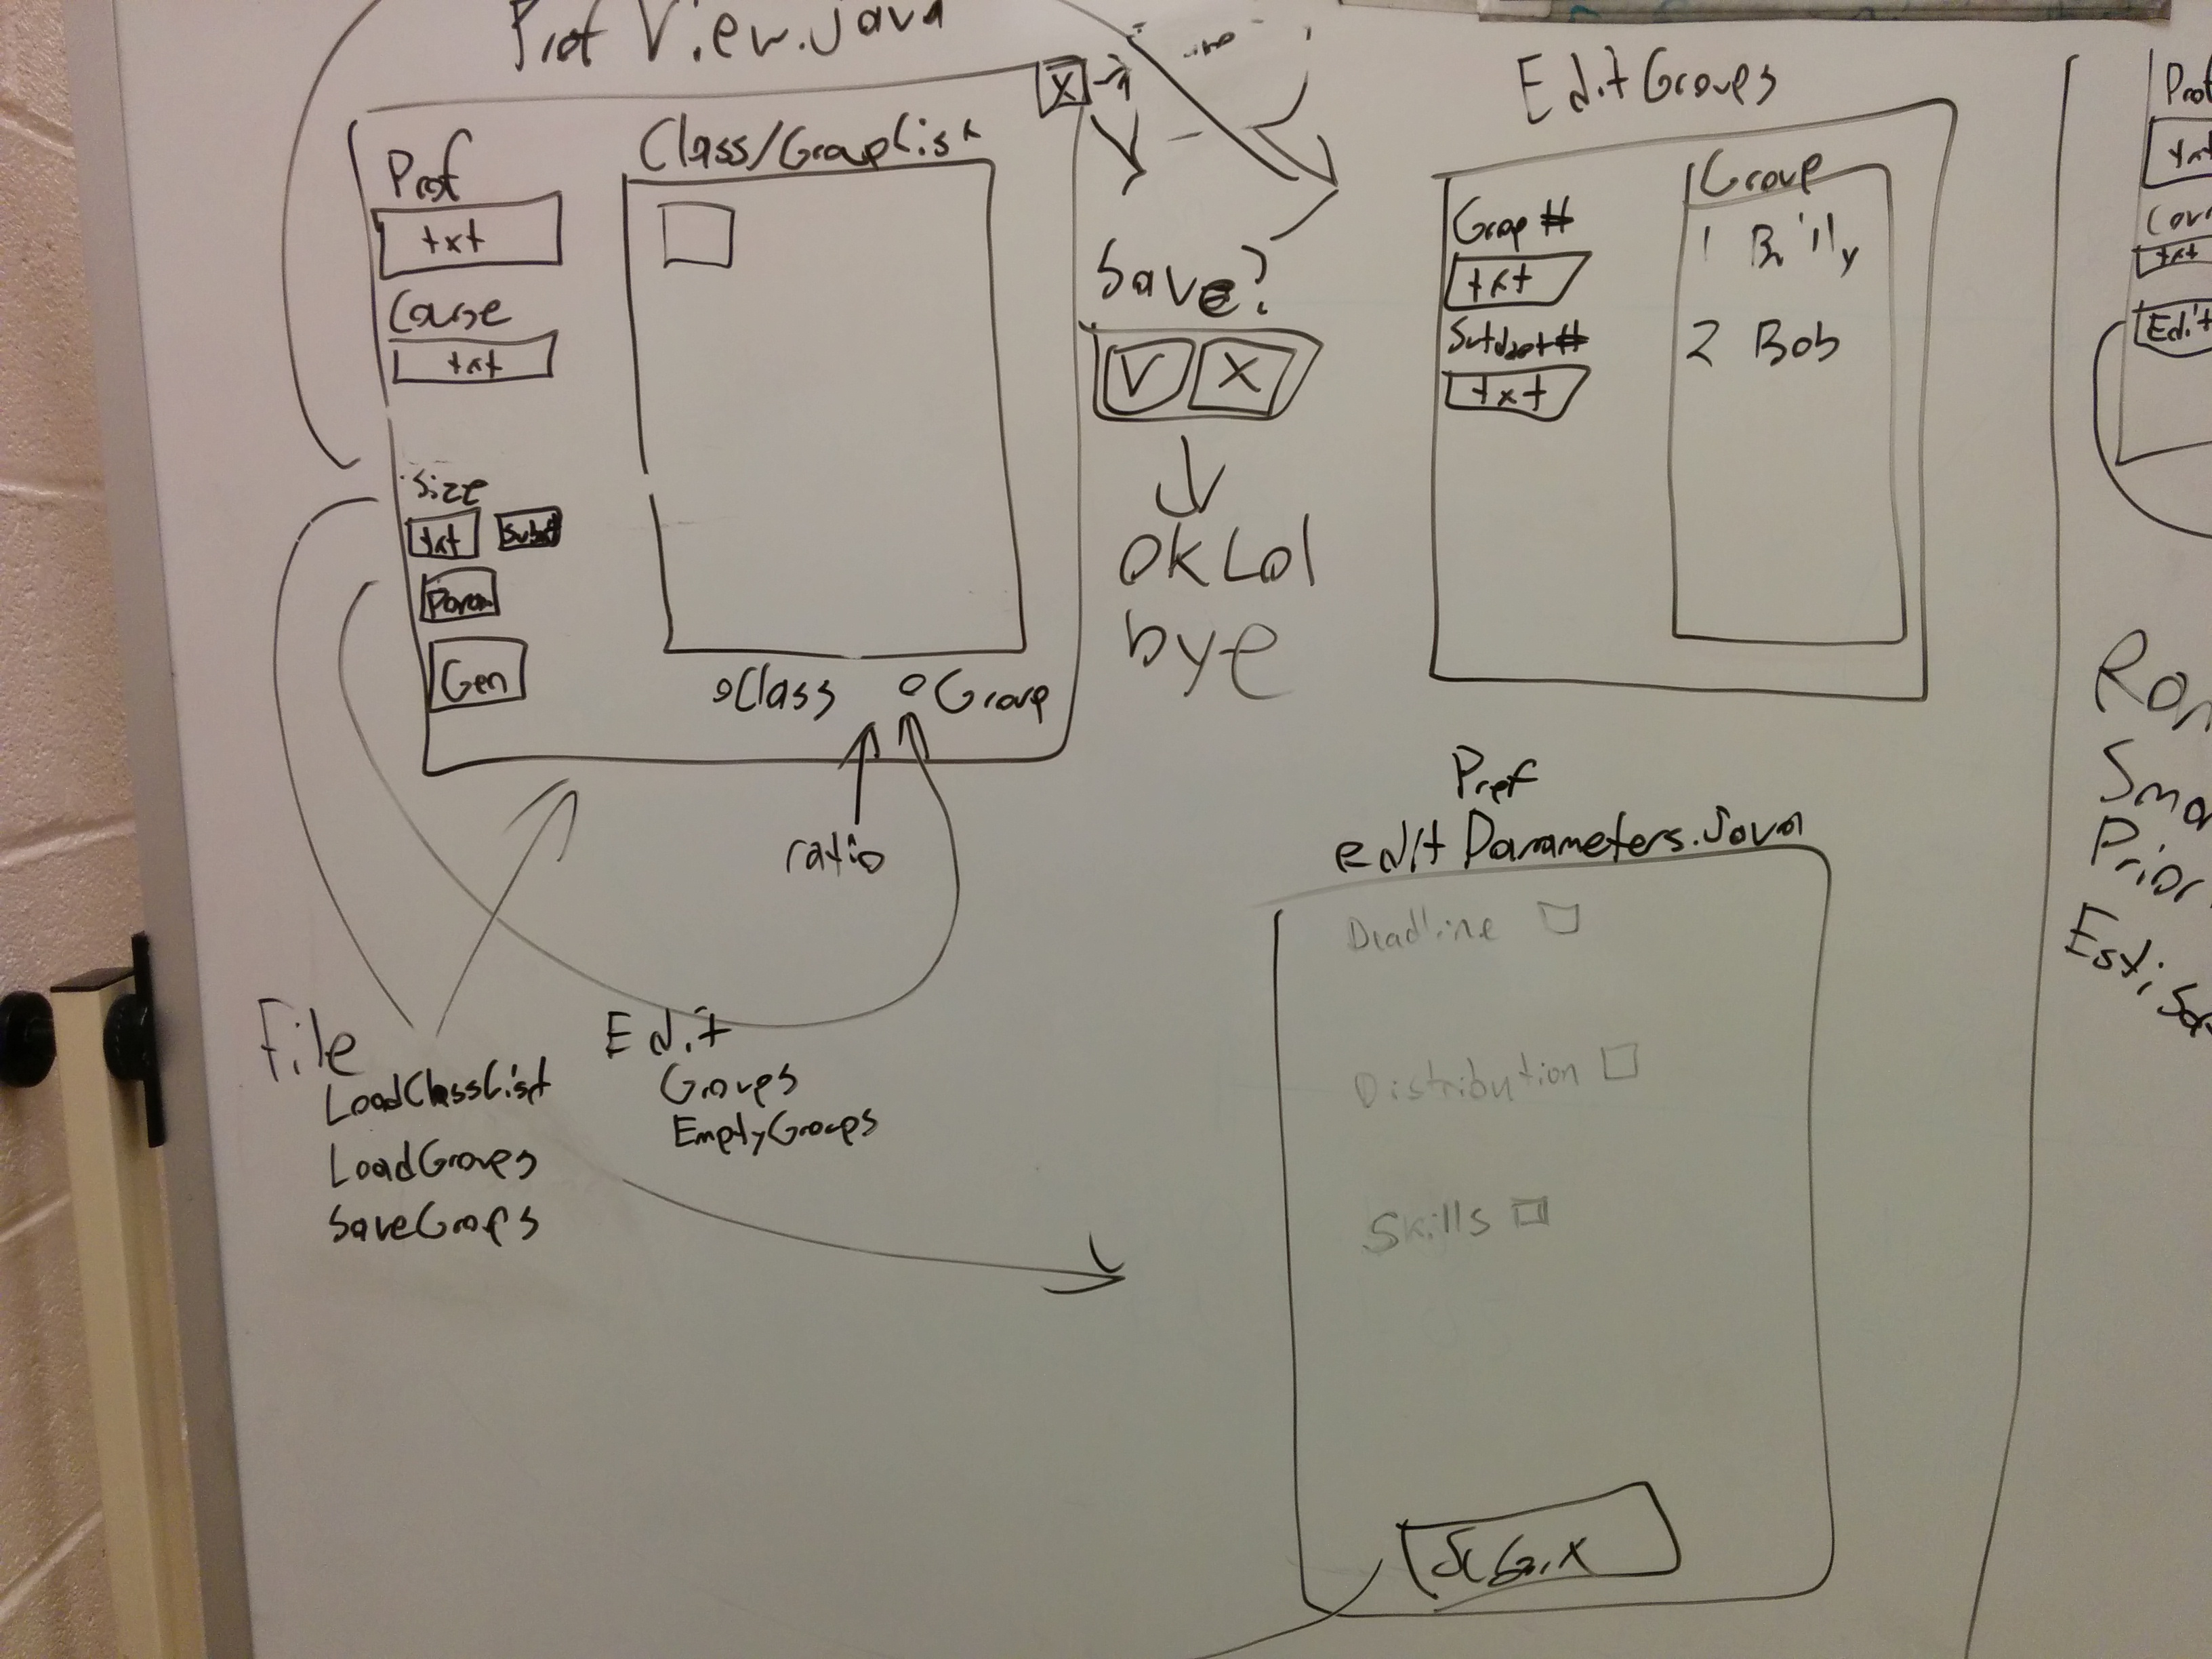 Prof View.java
X
Class/GroupList
Prof
txt
Course
txt
Size
txt
Param
Gen
Class
Group
ratio
Save?
X
ok Lol
bye
File
LoadClassList
LoadGroups
SaveGroups
Edit
Groups
EmptyGroups
Edit Groups
Group #
txt
txt
Group
1 Billy
2 Bob
Pref
edit Parameters.Java
Deadline
Distribution
Skills
Prof
txt
txt
Edit